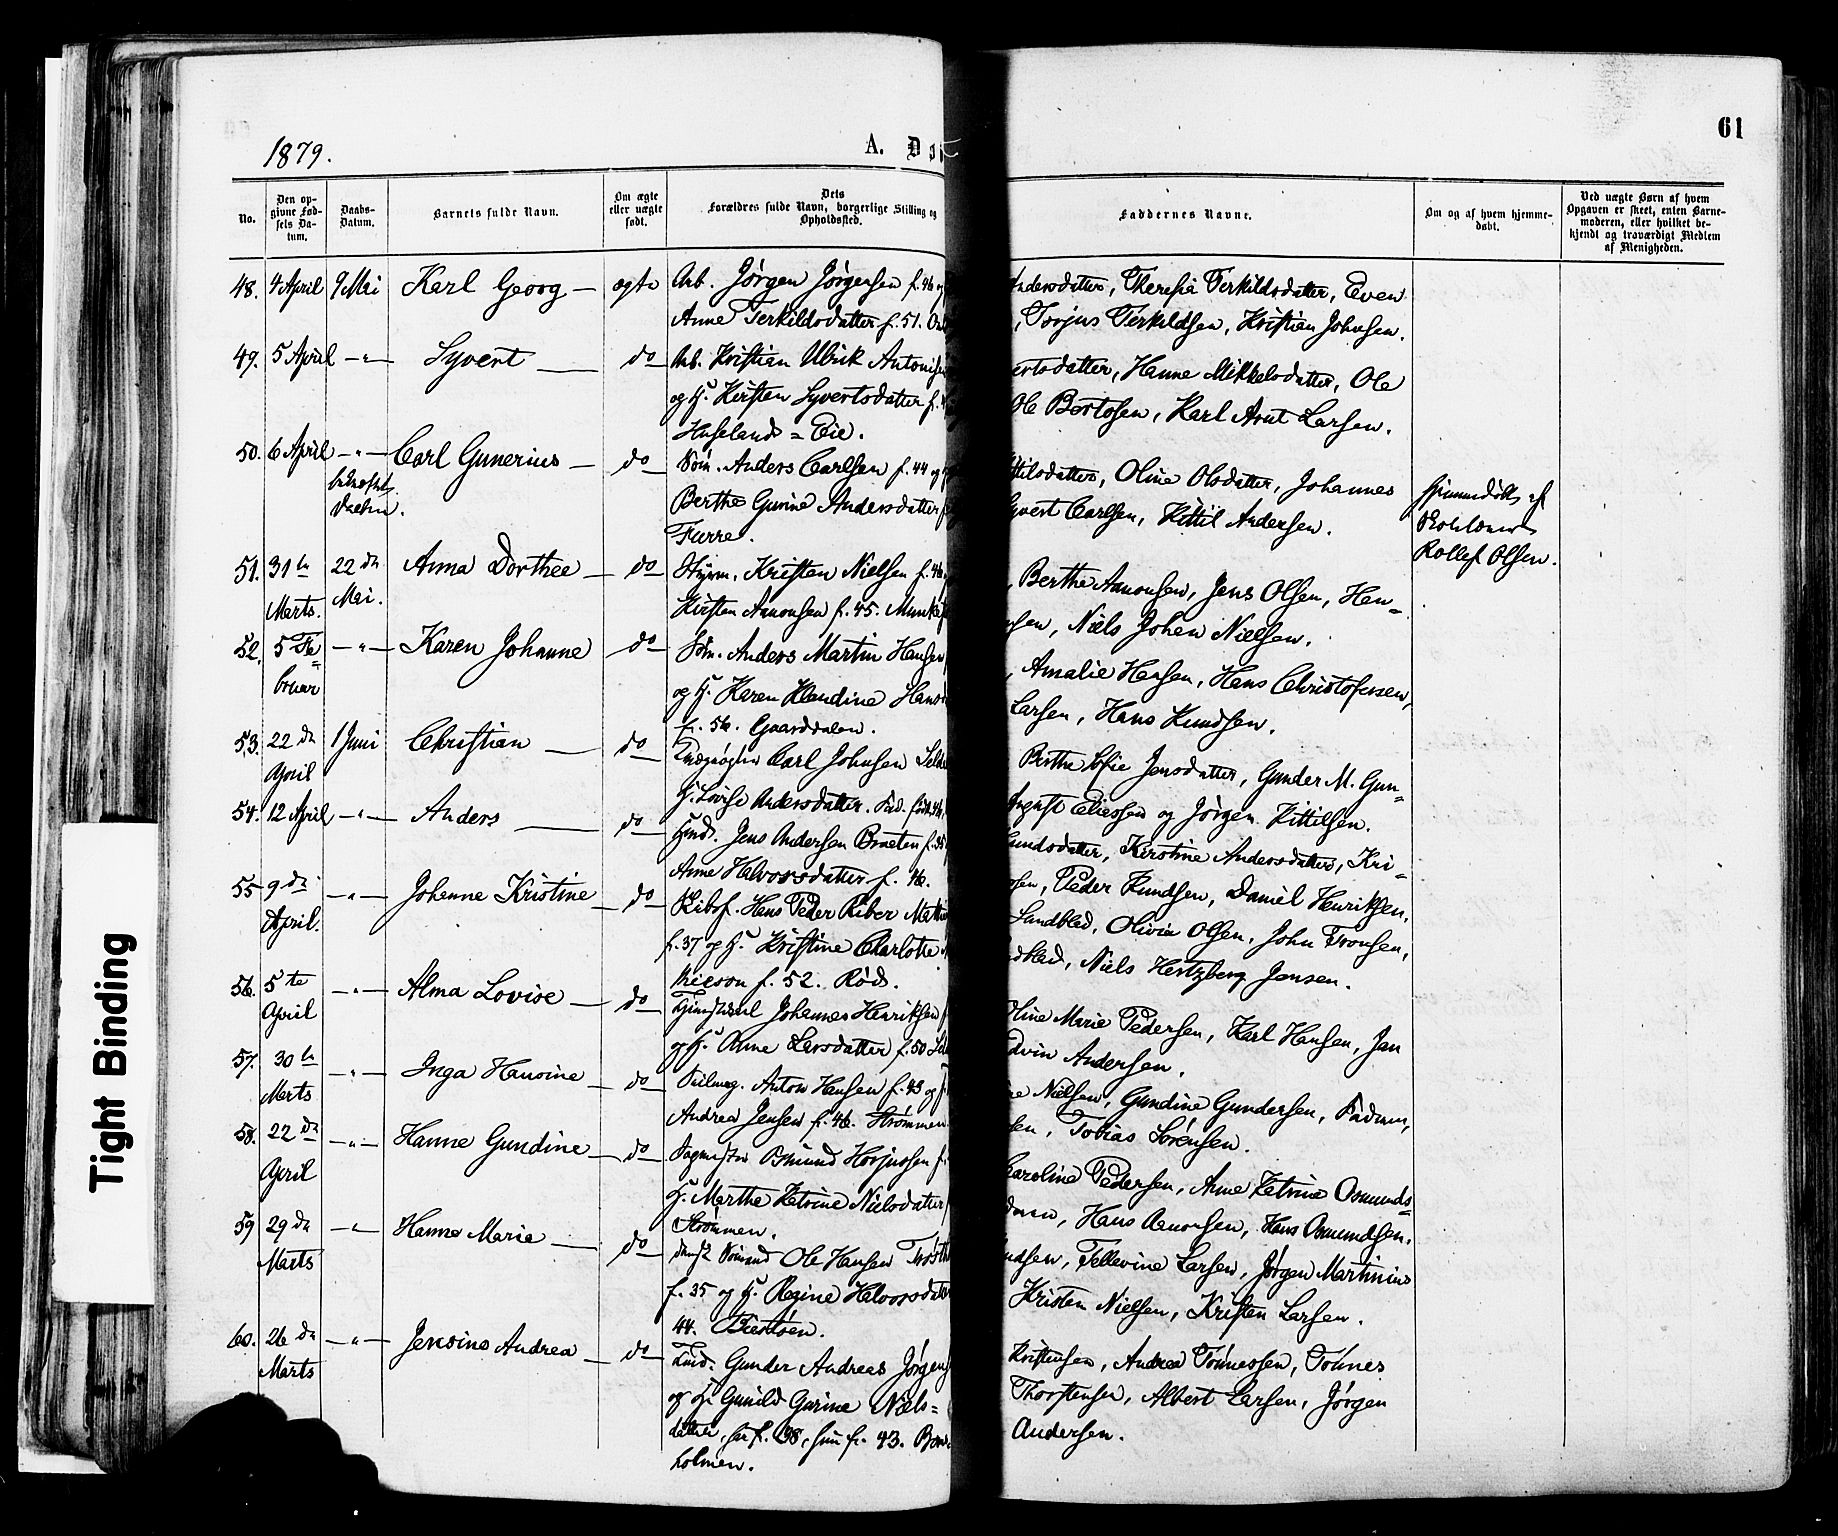 61
1879.
A. Dø
No.
Den op-
givne Fød-
sels Da-
tum.
Daabs-
Datum.
Barnets fulde Navn.
Om ægte
eller uægte
født.
Dets
Forældres fulde Navn, borgerlige Stilling og
Opholdssted.
Faddernes Navne.
Om og af hvem hjemme-
døbt.
Ved uægte Børn af hvem
Opgaven er skeet, enten Barne-
moderen, eller hvilket be-
kjendt og troværdigt Medlem
af Menigheden.
48. 4 April 9 Mai Karl Georg — ægte Arb. Jørgen Jørgensen f. 46 og
Anne Terkildsdatter f. 51.
andersdatter, Theresia Terkildsdatter, Even
, Torjus Terkildsen, Kristian Johnsen.
49. 5 April —"— Syvert — do — Arb. Kristian Ulrik Antonisen
og H. Kirsten Syvertsdatter f.
Huselands = Eie.
ertsdatter, Hanne Mikkelsdatter, Ole
Ole Bertosen, Karl Arnt Larsen.
50. 6 April —"— Carl Gunerius — do — Søm. Anders Carlsen f. 44 og
bekræft.
Daaben.
Berthe Gurine Andersdatter
Furre.
ittilsdatter, Oline Olsdatter, Johannes
Syvert Carlsen, Kittil Andersen.
Hjemmedøbt af
Rollef Olsen.
51. 31te Marts. 22de Mai. Anna Dorthee — do — Styrm. Kristen Nielsen f. 46.
Kirsten Aanonsen f. 45.
, Berthe Aanonsen, Jens Olsen, Han-
sen, Niels Johan Nielsen.
52. 5 Fe=
bruar —"— Karen Johanne do — Søm. Anders Martin Hansen
og H. Karen Klandine Hans
f. 56. Gaarddalen.
, Amalie Hansen, Hans Christofersen,
Larsen, Hans Knudsen.
53. 22de April 1 Juni Christian — do — Carl Johnsen
H. Lovise Andersdatter.
Berthe Sofie Jensdatter, Gunder M. Gun-
August Eliessen og Jørgen Kittilsen.
54. 12 April —"— Anders — do — Jens Andersen Braaten f. 35
Anne Halvorsdatter f. 46.
undsdatter, Kirstine Andersdatter, Kri-
sen, Peder Knudsen, Daniel Henriksen.
55 9de April. —"— Johanne Kristine — do — Skibsf. Hans Peder Riber
f. 37 og H. Kristine Charlotte
f. 52. Rød.
Sandblad, Olivia Olsen, John Tronsen,
dblad, Niels Hertzberg Jensen.
56. 5te April —"— Alma Lovise — do — Johannes Henriksen
og H. Anne Larsdatter f. 50
oline Marie Pedersen, Karl Hansen, Jan
dvin Andersen.
57. 30te Marts —"— Inga Hansine — do — Seilmag. Anton Hansen f. 43 og
Andrea Jensen f. 46. Strømmen
ne Nielsen, Gundine Gundersen, Faderen,
sen, Tobias Sørensen.
58. 22de April —"— Hanne Gundine — do — Osmund
H. Marthe Katrine Nielsdatter
Strømmen.
Caroline Pedersen, Anne Katrine Osmunds=
Hans Aanonsen, Hans Osmundsen.
59 29de Marts —"— Hanna Marie — do — Ole Hansen
f. 35 og H. Regine Halvorsdatt
44.
ndsen, Tellevine Larsen, Jørgen Martinius
Kristen Nielsen, Kristen Larsen.
60. 26de Marts —"— Jensine Andrea — do — Gunder Andreas Jørgens
og H. Gunild Gurine Niels=
datter, han f. 38, hun f. 43.
holmen.
Kristensen, Andrea Tønnessen, Tønnes
Thorstensen, Albert Larsen, Jørgen
Andersen.
Tight Binding